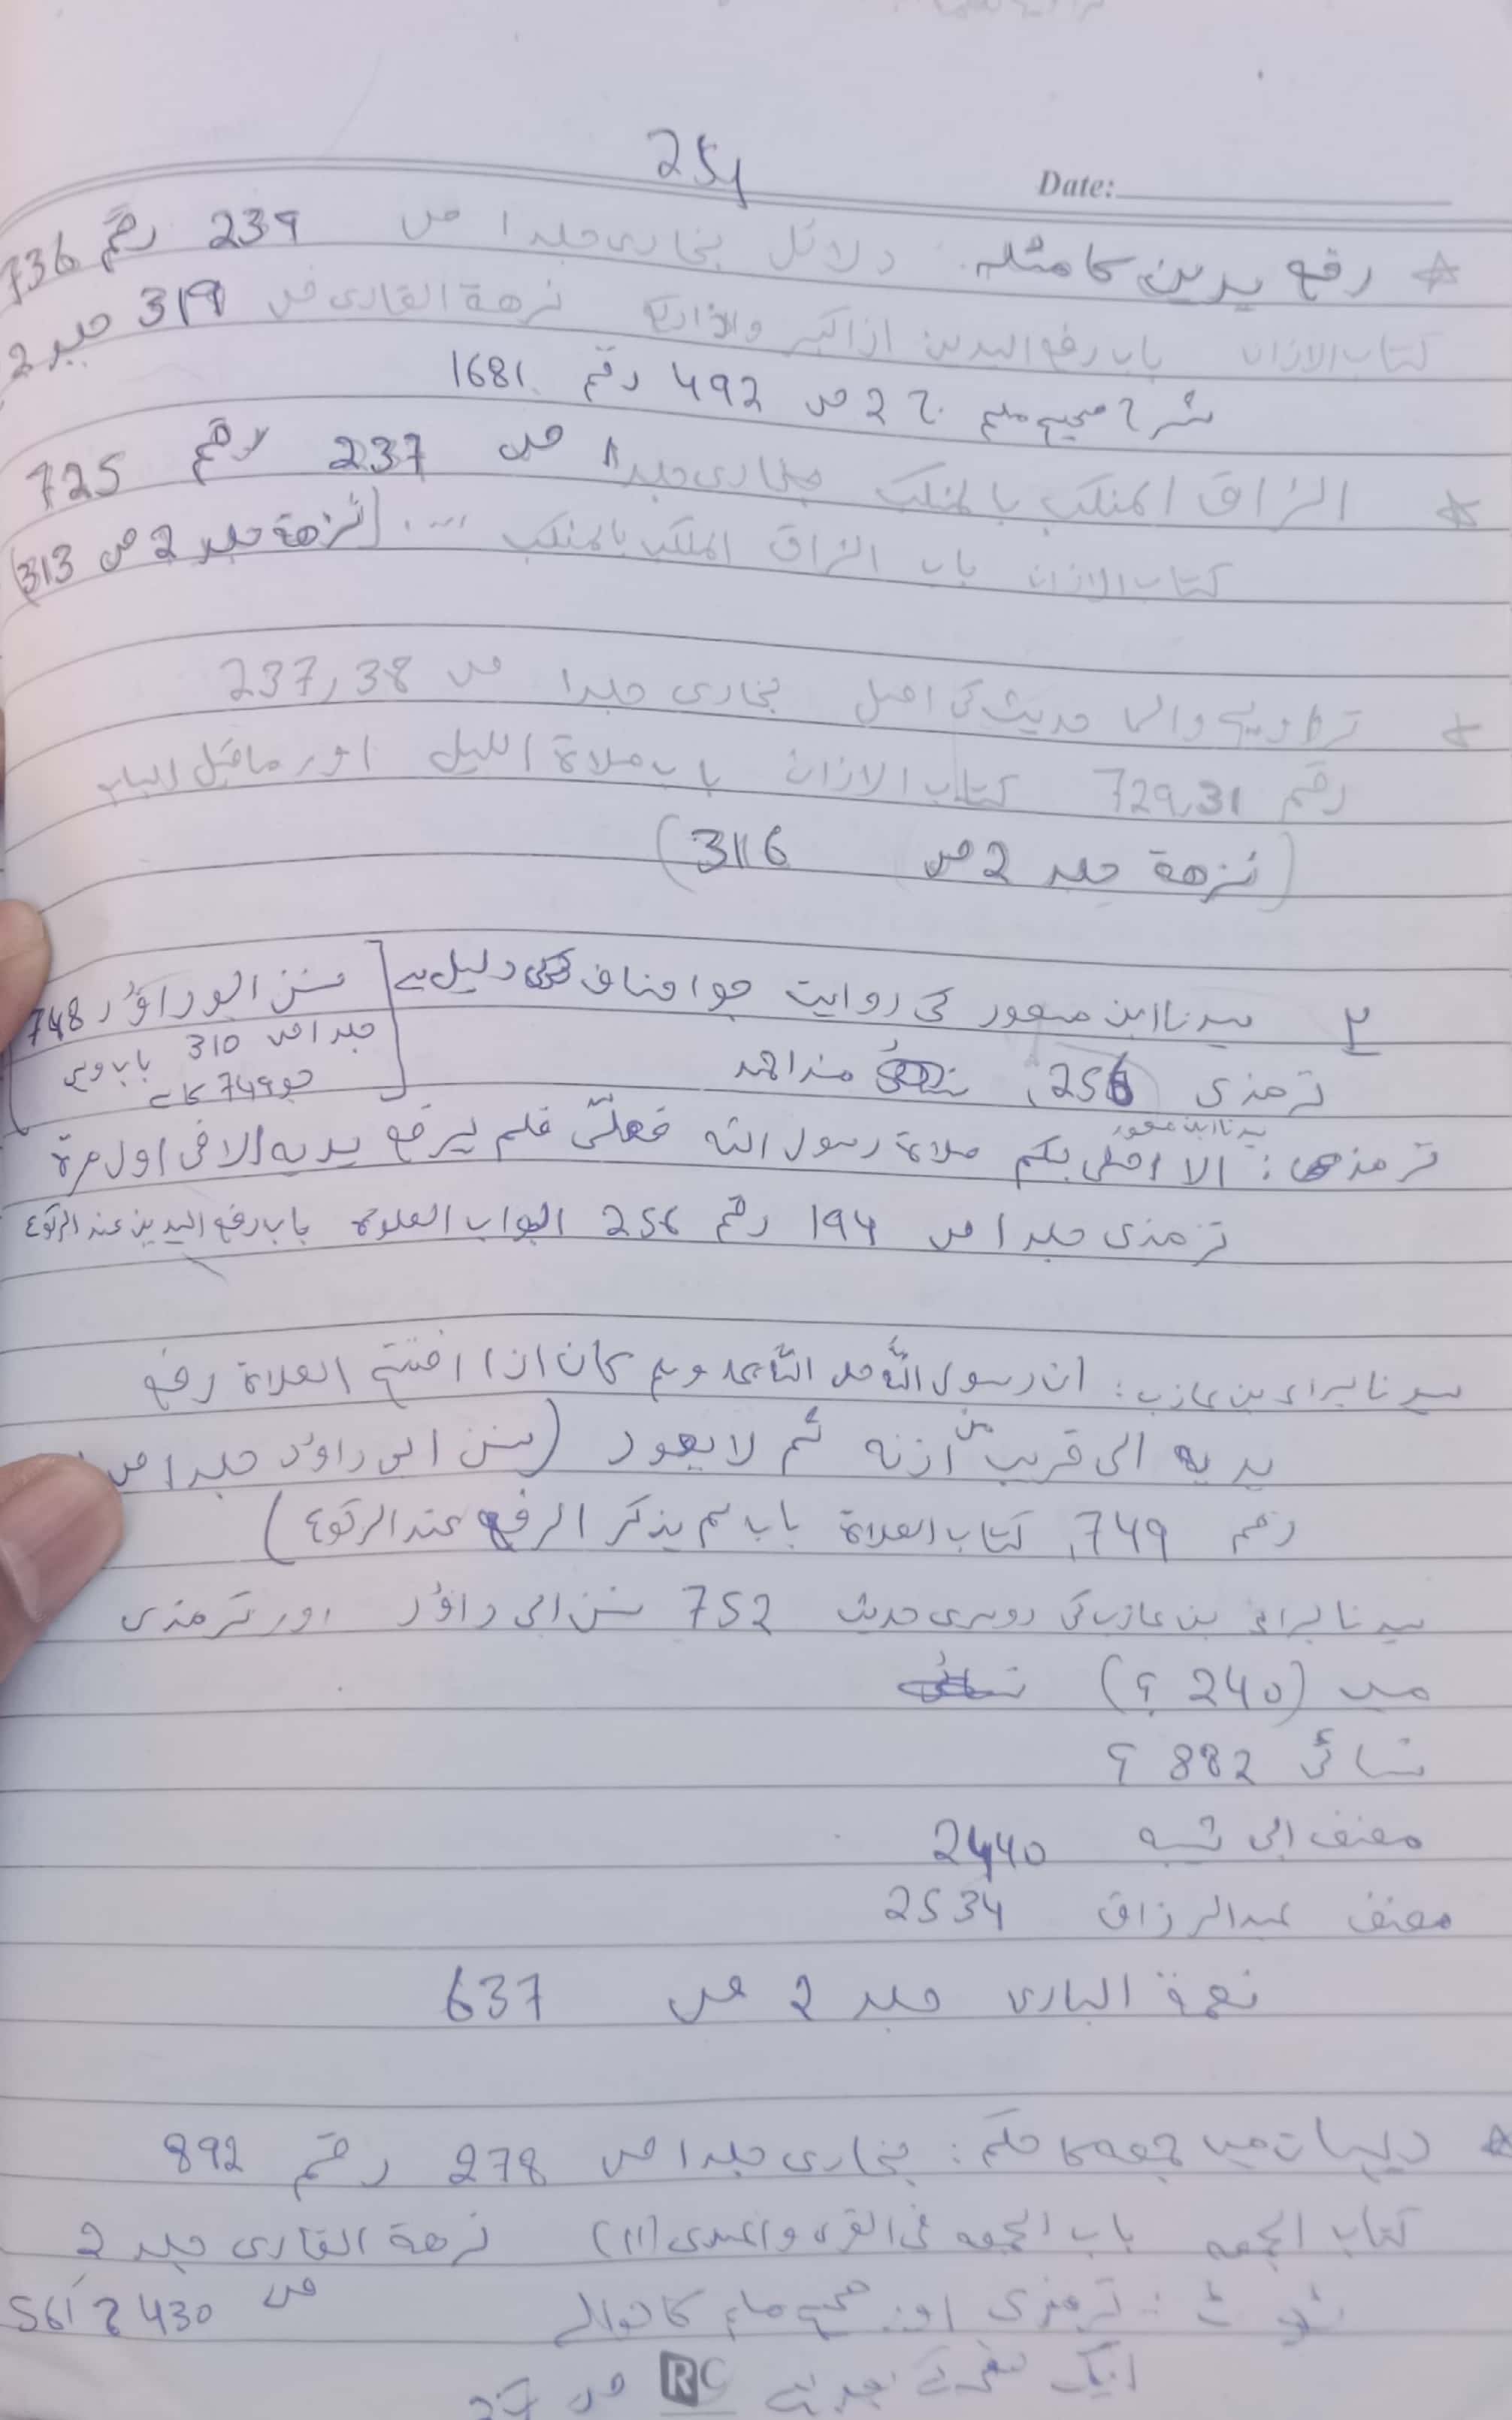 254
Date:
☆ رفع یدین کا مسئلہ: دلائل بخاری جلد 1 ص 239 رقم 736
کتاب الاذان باب رفع الیدین اذا کبر واذا رکع نزھة القاری ص 319 جلد 2
شرح صحیح مسلم ج 2 ص 492 رقم 1681
☆ الزاق المنکب بالمنکب بخاری جلد 1 ص 237 رقم 725
کتاب الاذان باب الزاق المنکب بالمنکب .... (نزھة جلد 2 ص 313)
☆ تراویح والی حدیث کی اصل بخاری جلد 1 ص 237,38
رقم 729,31 کتاب الاذان باب صلاة اللیل اور ماقبل الباب
(نزھة جلد 2 ص 316)
سیدنا ابن مسعود کی روایت جو احناف کی دلیل ہے
[سنن ابو داؤد 748
جلد 1 ص 310 باب وہی
جو 749 کا ہے]
ترمذی 256، مسند احمد
سیدنا ابن مسعود
ترمذی: الا اصلی بکم صلاة رسول اللہ فصلّی فلم یرفع یدیه الا فی اول مرة
ترمذی جلد 1 ص 194 رقم 256 ابواب الصلوة باب رفع الیدین عند الرکوع
سیدنا براء بن عازب: ان رسول اللہ صلی اللہ علیہ وسلم کان اذا افتتح الصلاة رفع
یدیه الی قریب من اذنه ثم لا یعود (سنن ابی داؤد جلد 1 ص
رقم 749، کتاب الصلاة باب لم یذکر الرفع عند الرکوع)
سیدنا براء بن عازب کی دوسری حدیث 752 سنن ابی داؤد اور ترمذی
میں (240 ؟)
نسائی 882 ؟
مصنف ابی شیبه 2440
مصنف عبدالرزاق 2534
نعمة الباری جلد 2 ص 637
☆ دیہات میں جمعہ کا حکم: بخاری جلد 1 ص 278 رقم 892
کتاب الجمعه باب الجمعه فی القری والمدن (11) نزھة القاری جلد 2
ص 430
نوٹ: ترمذی اور صحیح مسلم کا حوالہ
ایک
RC
ص 27